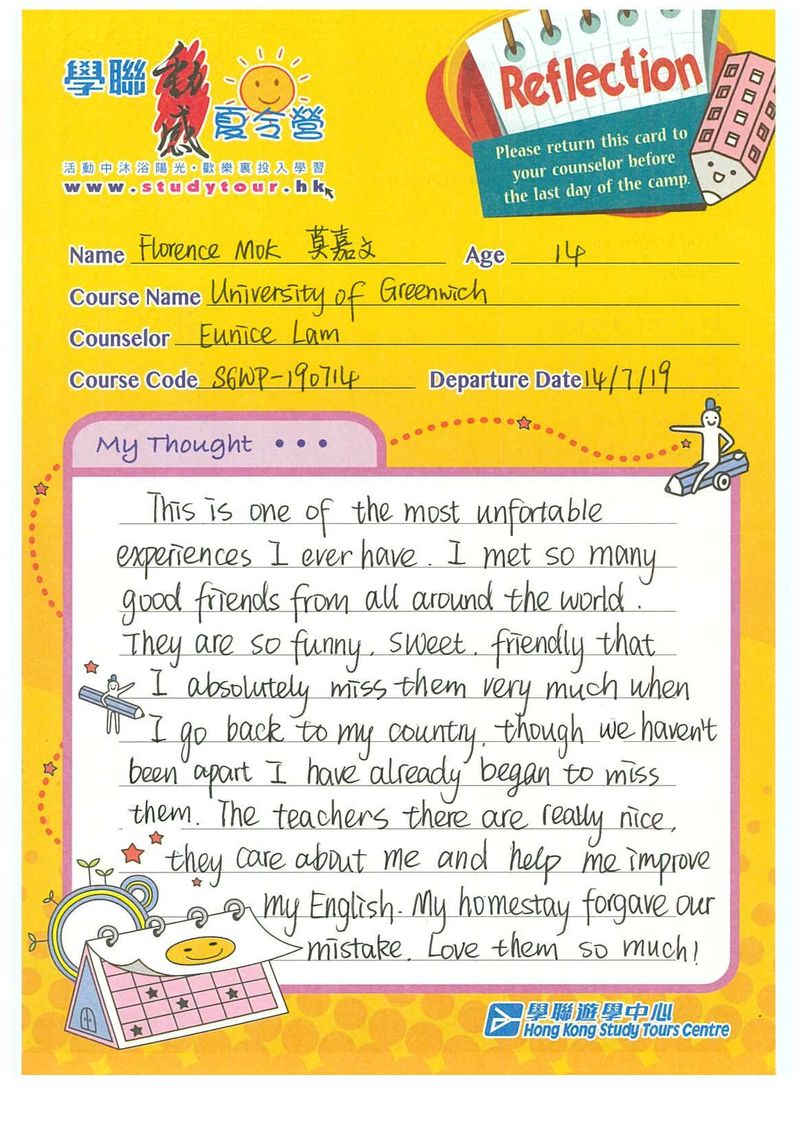 學聯 動感 夏令營
活動中沐浴陽光•歡樂裏投入學習
www.studytour.hk
Reflection
Please return this card to
your counselor before
the last day of the camp.
Name Florence Mok 莫嘉文 Age 14
Course Name University of Greenwich
Counselor Eunice Lam
Course Code SGWP-190714 Departure Date 14/7/19
My Thought • • •
This is one of the most unfortable
experiences I ever have. I met so many
good friends from all around the world.
They are so funny, sweet, friendly that
I absolutely miss them very much when
I go back to my country, though we haven't
been apart I have already began to miss
them. The teachers there are really nice,
they care about me and help me improve
my English. My homestay forgave our
mistake. Love them so much!
學聯遊學中心
Hong Kong Study Tours Centre